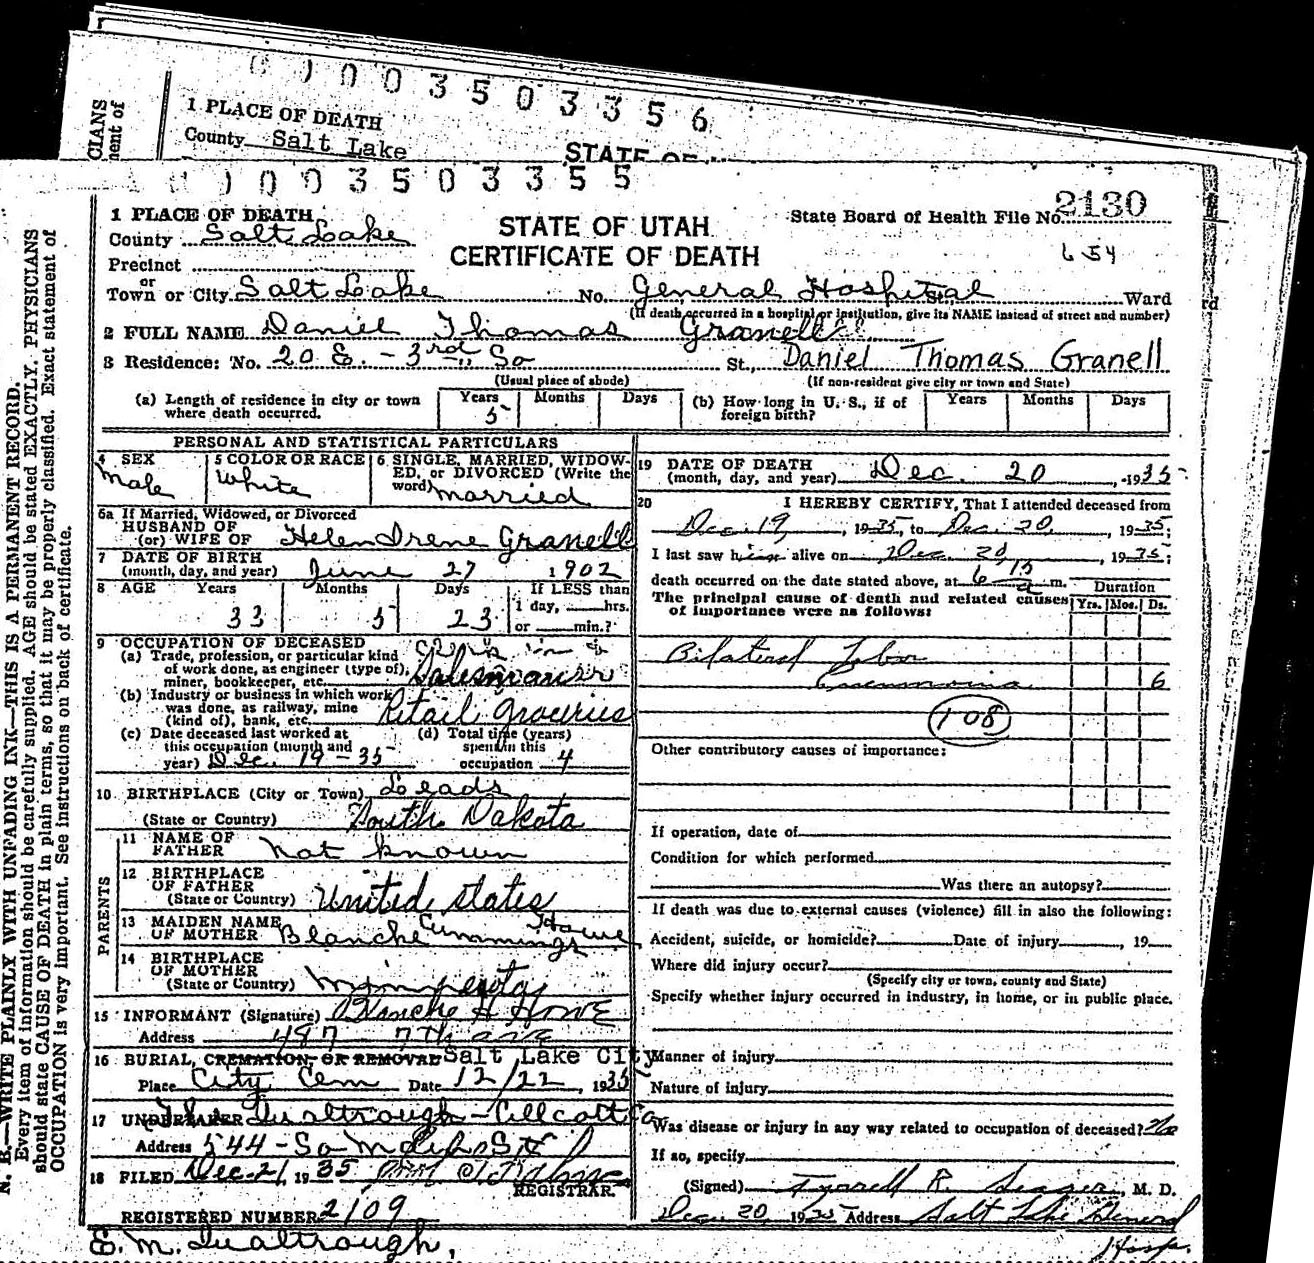 0 0 0 3 5 0 3 3 5 6
CIANS
ment of
1 PLACE OF DEATH
County Salt Lake
STATE OF
0 0 3 5 0 3 3 5 5
2130
1 PLACE OF DEATH
County Salt Lake
STATE OF UTAH
CERTIFICATE OF DEATH
State Board of Health File No.
654
Precinct
or
Town or City Salt Lake No. General Hospital St. Ward
rd
(If death occurred in a hospital or institution, give its NAME instead of street and number)
2 FULL NAME Daniel Thomas Granell
3 Residence: No. 20 E. - 3rd So St., Daniel Thomas Granell
(Usual place of abode) (If non-resident give city or town and State)
(a) Length of residence in city or town where death occurred. Years 5 Months Days
(b) How long in U. S., if of foreign birth? Years Months Days
PERSONAL AND STATISTICAL PARTICULARS
4 SEX Male
5 COLOR OR RACE White
6 SINGLE, MARRIED, WIDOWED, or DIVORCED (Write the word) married
6a If Married, Widowed, or Divorced
HUSBAND OF
(or) WIFE OF Helen Irene Granell
7 DATE OF BIRTH
(month, day, and year) June 27 1902
8 AGE Years 33 Months 5 Days 23 If LESS than
1 day, hrs.
or min.?
9 OCCUPATION OF DECEASED
(a) Trade, profession, or particular kind
of work done, as engineer (type of),
miner, bookkeeper, etc. Salesman
(b) Industry or business in which work
was done, as railway, mine
(kind of), bank, etc. Retail Groceries
(c) Date deceased last worked at
this occupation (month and
year) Dec. 19 - 35
(d) Total time (years)
spent in this
occupation 4
10 BIRTHPLACE (City or Town) Leads
(State or Country) South Dakota
PARENTS
11 NAME OF
FATHER not known
12 BIRTHPLACE
OF FATHER
(State or Country) United States
13 MAIDEN NAME
OF MOTHER Blanche Cummings Howe
14 BIRTHPLACE
OF MOTHER
(State or Country) Minnesota
15 INFORMANT (Signature) Blanche H Howe
Address 487 7th ave
16 BURIAL, CREMATION, OR REMOVAL Salt Lake City
Place City Cem Date 12/22, 1935
17 UNDERTAKER The Qualtrough - Allcott Co
Address 544 - So Main St
18 FILED Dec 21, 1935
REGISTRAR.
REGISTERED NUMBER 2109
E. M. Qualtrough,
19 DATE OF DEATH
(month, day, and year) Dec. 20, 1935
20 I HEREBY CERTIFY, That I attended deceased from
Dec. 19, 1935, to Dec. 20, 1935;
I last saw him alive on Dec 20, 1935;
death occurred on the date stated above, at 6 15 a m.
The principal cause of death and related causes
of importance were as follows:
Duration
Yrs. Mos. Ds.
Bilateral Lobar
Pneumonia 6
108
Other contributory causes of importance:
If operation, date of
Condition for which performed
Was there an autopsy?
If death was due to external causes (violence) fill in also the following:
Accident, suicide, or homicide? Date of injury , 19
Where did injury occur?
(Specify city or town, county and State)
Specify whether injury occurred in industry, in home, or in public place.
Manner of injury
Nature of injury
Was disease or injury in any way related to occupation of deceased? No
If so, specify
(Signed) Tyrrell R. Seager, M. D.
Dec. 20, 1935 Address Salt Lake General
Hosp.
N. B.—WRITE PLAINLY WITH UNFADING INK—THIS IS A PERMANENT RECORD.
Every item of information should be carefully supplied. AGE should be stated EXACTLY. PHYSICIANS
should state CAUSE OF DEATH in plain terms, so that it may be properly classified. Exact statement of
OCCUPATION is very important. See instructions on back of certificate.